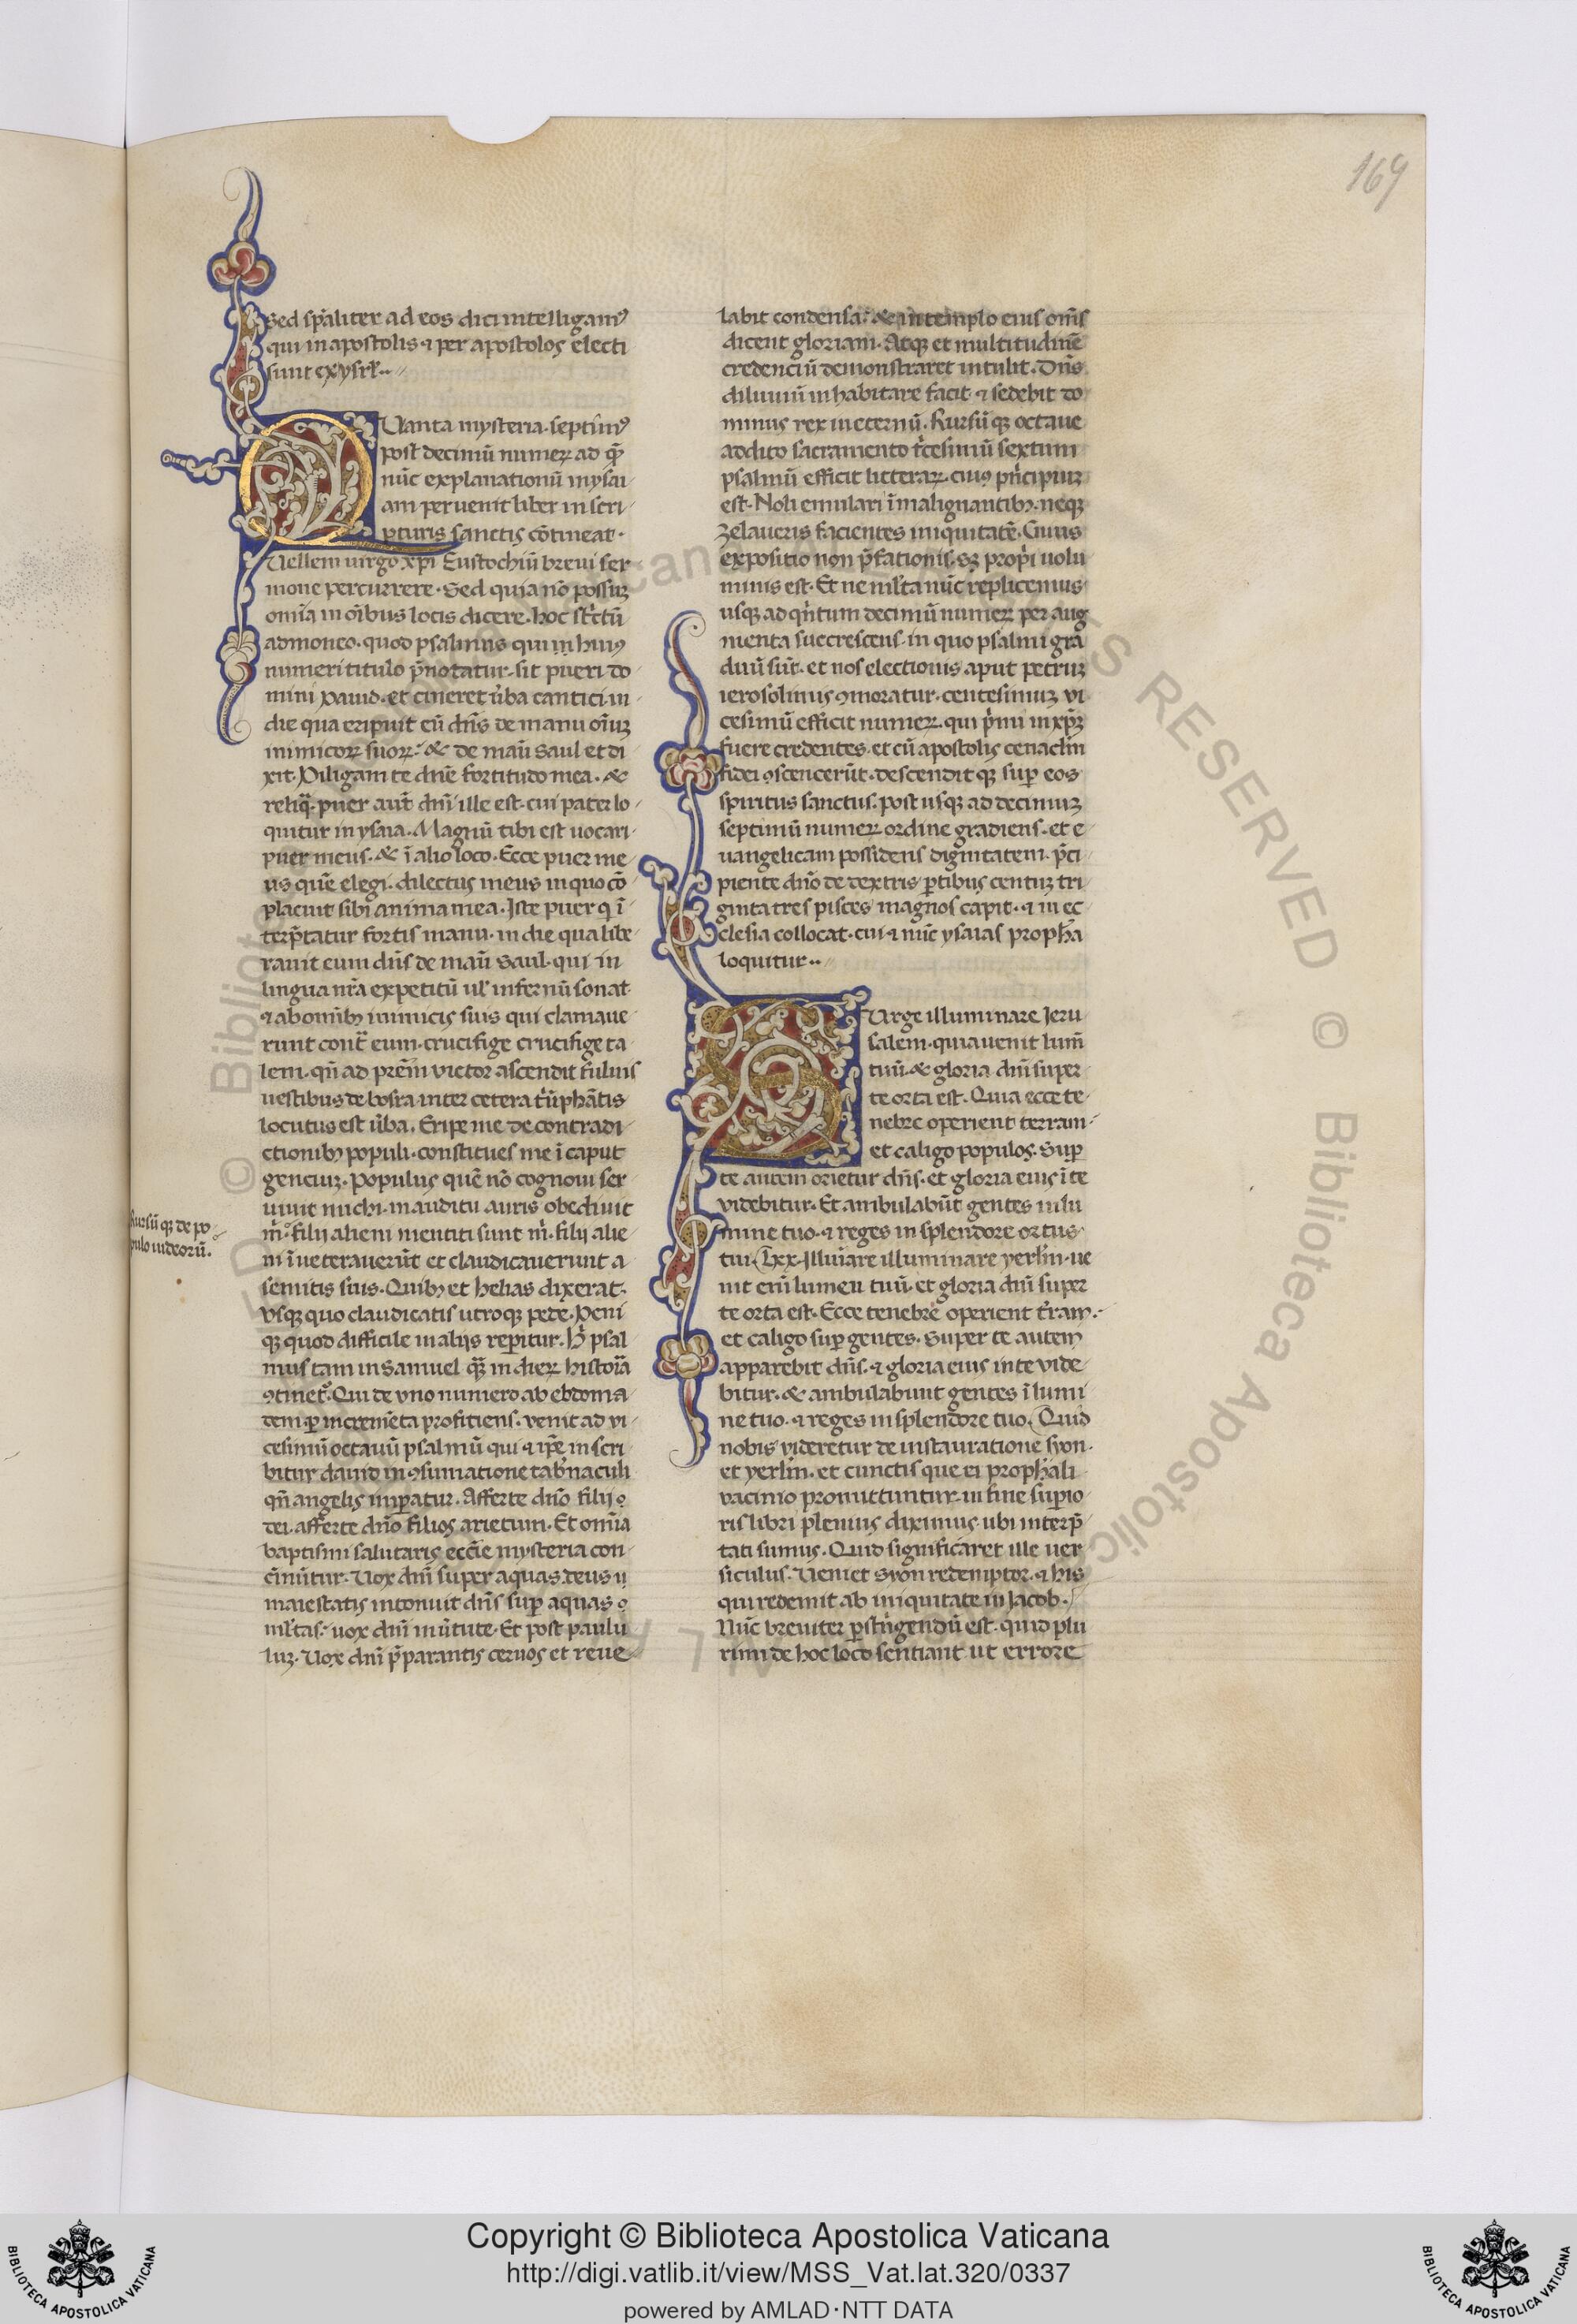 169
Sed sp̃aliter ad eos dici intelligamꝰ
qui in apostolis ⁊ per apostolos electi
sunt ex ysrł··
QUanta mysteria septimꝰ
post decimũ numeꝝ ad q̃
nũc explanationũ in ysai
am pervenit liber in scri
pturis sanctis cõtineat·
Uellem uirgo xp̃i Eustochiũ brevi ser
mone percurrere· Sed quia nõ possuꝫ
om̃ia in oĩbus locis dicere· hoc strictũ
admoneo· quod psalmus qui in huiꝰ
numeri titulo p̃notatur· sit pueri do
mini David· et cineret u̾ba cantici in
die qua eripuit eũ dñs de manu oĩuꝫ
inimicoꝝ suoꝝ· & de manũ Saul et di
xit· Diligam te dñe fortitudo mea· &
reliq̃· puer aut̃ dñi ille est· cui pater lo
quitur in ysaia· Magnũ tibi est uocari
puer meus· & ĩ alio loco· Ecce puer me
us quẽ elegi· dilectus meus in quo cõ
placuit sibi anima mea· Iste puer q ĩ
terp̃tatur fortis manu· in die qua libe
ravit eum dñs de manũ Saul· qui in
lingua nr̃a expetitũ uł infernũ sonat
⁊ ab omĩbꝫ inimicis suis qui clamaue
runt cont̃ eum· crucifige crucifige ta
lem· qñ ad prẽm victor ascendit fuluis
uestibus de bosra inter cetera triũphãtis
locutus est u̾ba· Eripe me de contradi
ctionibꝫ populi· constitues me ĩ caput
gentiuꝫ· Populus quẽ nõ cognovi ser
uiuit michi· in auditu auris obedivit
m̃· filij alieni mentiti sunt m̃· filij alie
ni ĩueteraverũt et claudicaverunt a
semitis suis· Quibꝫ et helias dixerat·
Usqꝫ quo claudicatis utroqꝫ pede· Deni
qꝫ quod difficile in alijs rep̃itur· Hĩ psal
mus tam in Samuel q̃ in dieꝝ historia
ꝯtinetͬ· Qui de uno numero ab ebdoma
dem ꝑ incremẽta profitiens· venit ad vi
cesimũ octauũ psalmũ qui ⁊ ip̃e in scri
bitur david in ꝯsumatione tab̾naculi
qñ angelis imꝑatur· Afferte dño filij
dei· afferte dño filios arietum· Et om̃ia
baptismi salutaris eccłie mysteria con
cĩnũtur· Uox dñi super aquas deus
maiestatis intonuit dñs suꝑ aquas
młtas· uox dñi in ũtute· Et post paulu
luꝫ· Uox dñi p̃parantis cervos et reve
Rursũ qꝫ de po
pulo iudeorũ·
labit condensa· & in templo eius om̃s
dicent gloriam· Atqꝫ et multitudinẽ
credenciũ demonstraret intulit· Dñs
diluuiũ inhabitare facit· ⁊ sedebit do
minus rex in eternũ· Rursũ qꝫ octaue
addito sacramento tricesimũ sextum
psalmũ efficit litteraꝝ· cuiꝰ pñcipiuꝫ
est· Noli emulari ĩ malignantibꝫ· neqꝫ
zelaveris facientes iniquitatẽ· Cuius
expositio non p̃fationis· sꝫ propri uolu
minis est· Et ne młta nũc replicemus
usqꝫ ad qĩtum decimũ numeꝝ per aug
menta succrescens· in quo psalmi gra
duũ sũt· et nos electionis aput petruꝫ
ierosolimis ꝯmoratur· centesimuꝫ vi
cesimũ efficit numeꝝ· qui p̃mi in xp̃ꝫ
fuere credentes· et cũ apostolis cenacłm
fidei ꝯscenderũt· descendit qꝫ suꝑ eos
spiritus sanctus· post usqꝫ ad decimuꝫ
septimũ numeꝝ ordine gradiens· et e
uangelicam possidens dignitatem· p̃ci
piente dño de dextris ꝑtibus centuꝫ tri
ginta tres pisces magnos capit· ⁊ in ec
clesia collocat· cui ⁊ nũc ysaias prophã
loquitur··
SUrge illuminare Ieru
salem· quia uenit lum̃
tuũ· & gloria dñi super
te orta est· Quia ecce te
nebre operient terram·
et caligo populos· Suꝑ
te autem orietur dñs· et gloria eius ĩ te
videbitur· Et ambulabũt gentes in lu
mine tuo· ⁊ reges in splendore ortus
tui· Lxx· Illuĩare illuminare yerłm· ue
nit enĩ lumen tuũ· et gloria dñi super
te orta est· Ecce tenebre operient t̃ram·
et caligo suꝑ gentes· Super te autem
apparebit dñs· ⁊ gloria eius in te vide
bitur· & ambulabunt gentes ĩ lumi
ne tuo· ⁊ reges in splendore tuo· Quid
nobis videretur de instauratione syon·
et yerłm· et cunctis que ei prophãli
vacinio promittuntur· in fine suꝑio
ris libri plenius diximus· ubi interp̃
tati sumus· Quid significaret ille uer
siculus· Ueniet syon redemptor· ⁊ his
qui redemit ab iniquitate in Iacob·
Nũc breviter ꝑstrĩgendũ est· quid plu
rimi de hoc loco sentiant ut errore
Copyright © Biblioteca Apostolica Vaticana
http://digi.vatlib.it/view/MSS_Vat.lat.320/0337
powered by AMLAD·NTT DATA
BIBLIOTECA APOSTOLICA VATICANA
BIBLIOTECA APOSTOLICA VATICANA